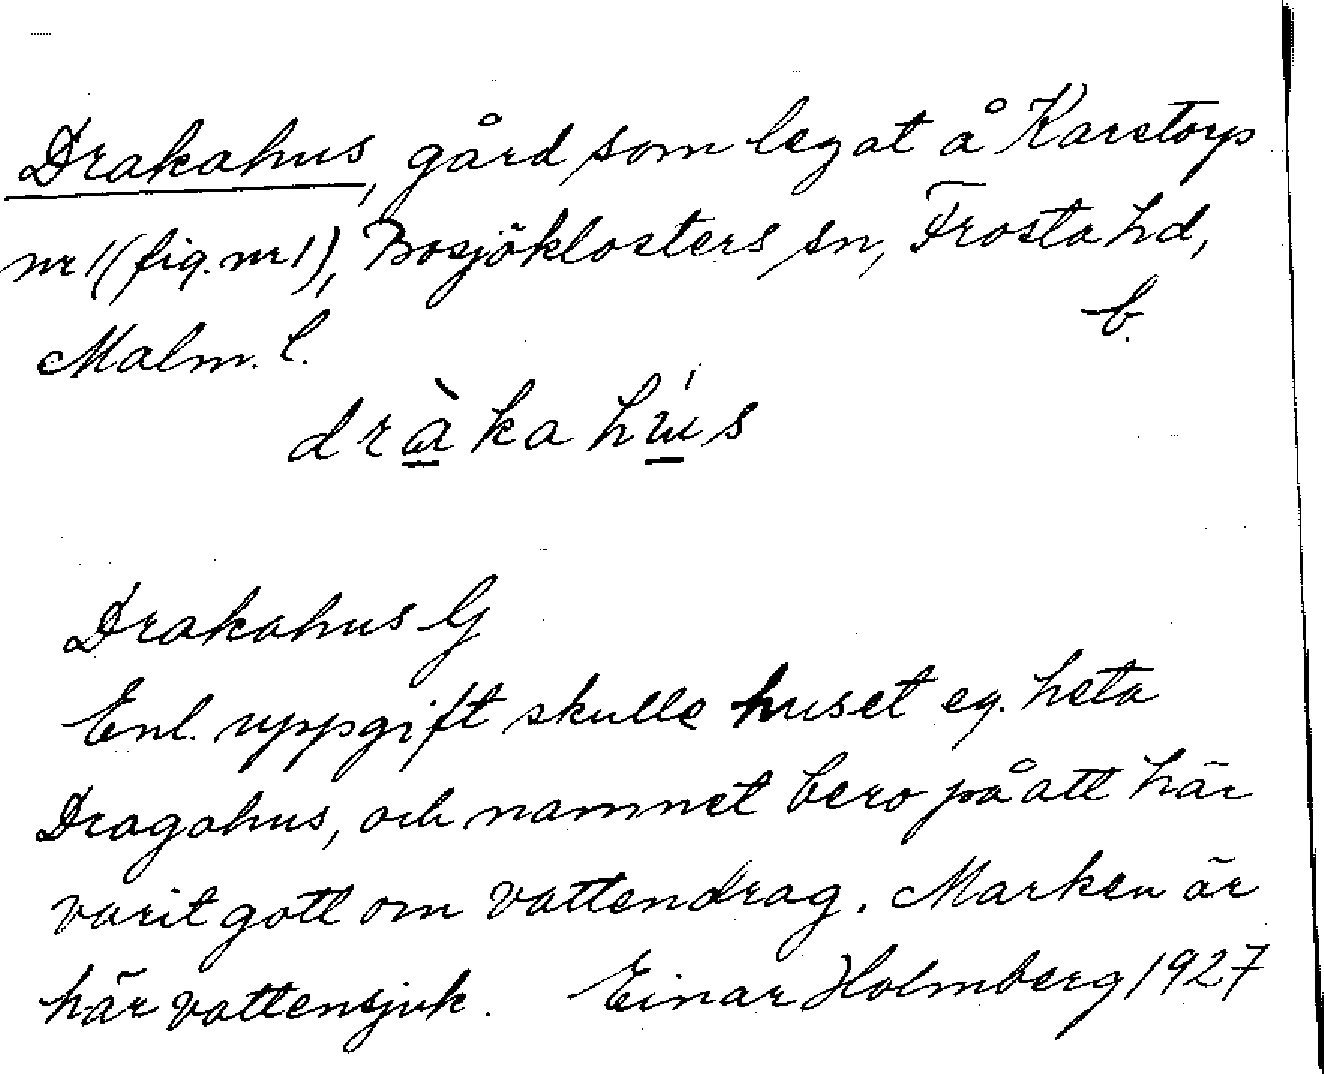 Drakahus, gård som legat å Karstorp
nr 1 (fig. nr 1), Bosjöklosters sn, Frosta hd,
Malm. l.
b.
dràkahús
Drakahus G
Enl. uppgift skulle huset eg. heta
Dragahus, och namnet bero på att här
varit gott om vattendrag. Marken är
här vattensjuk. Einar Holmberg 1927